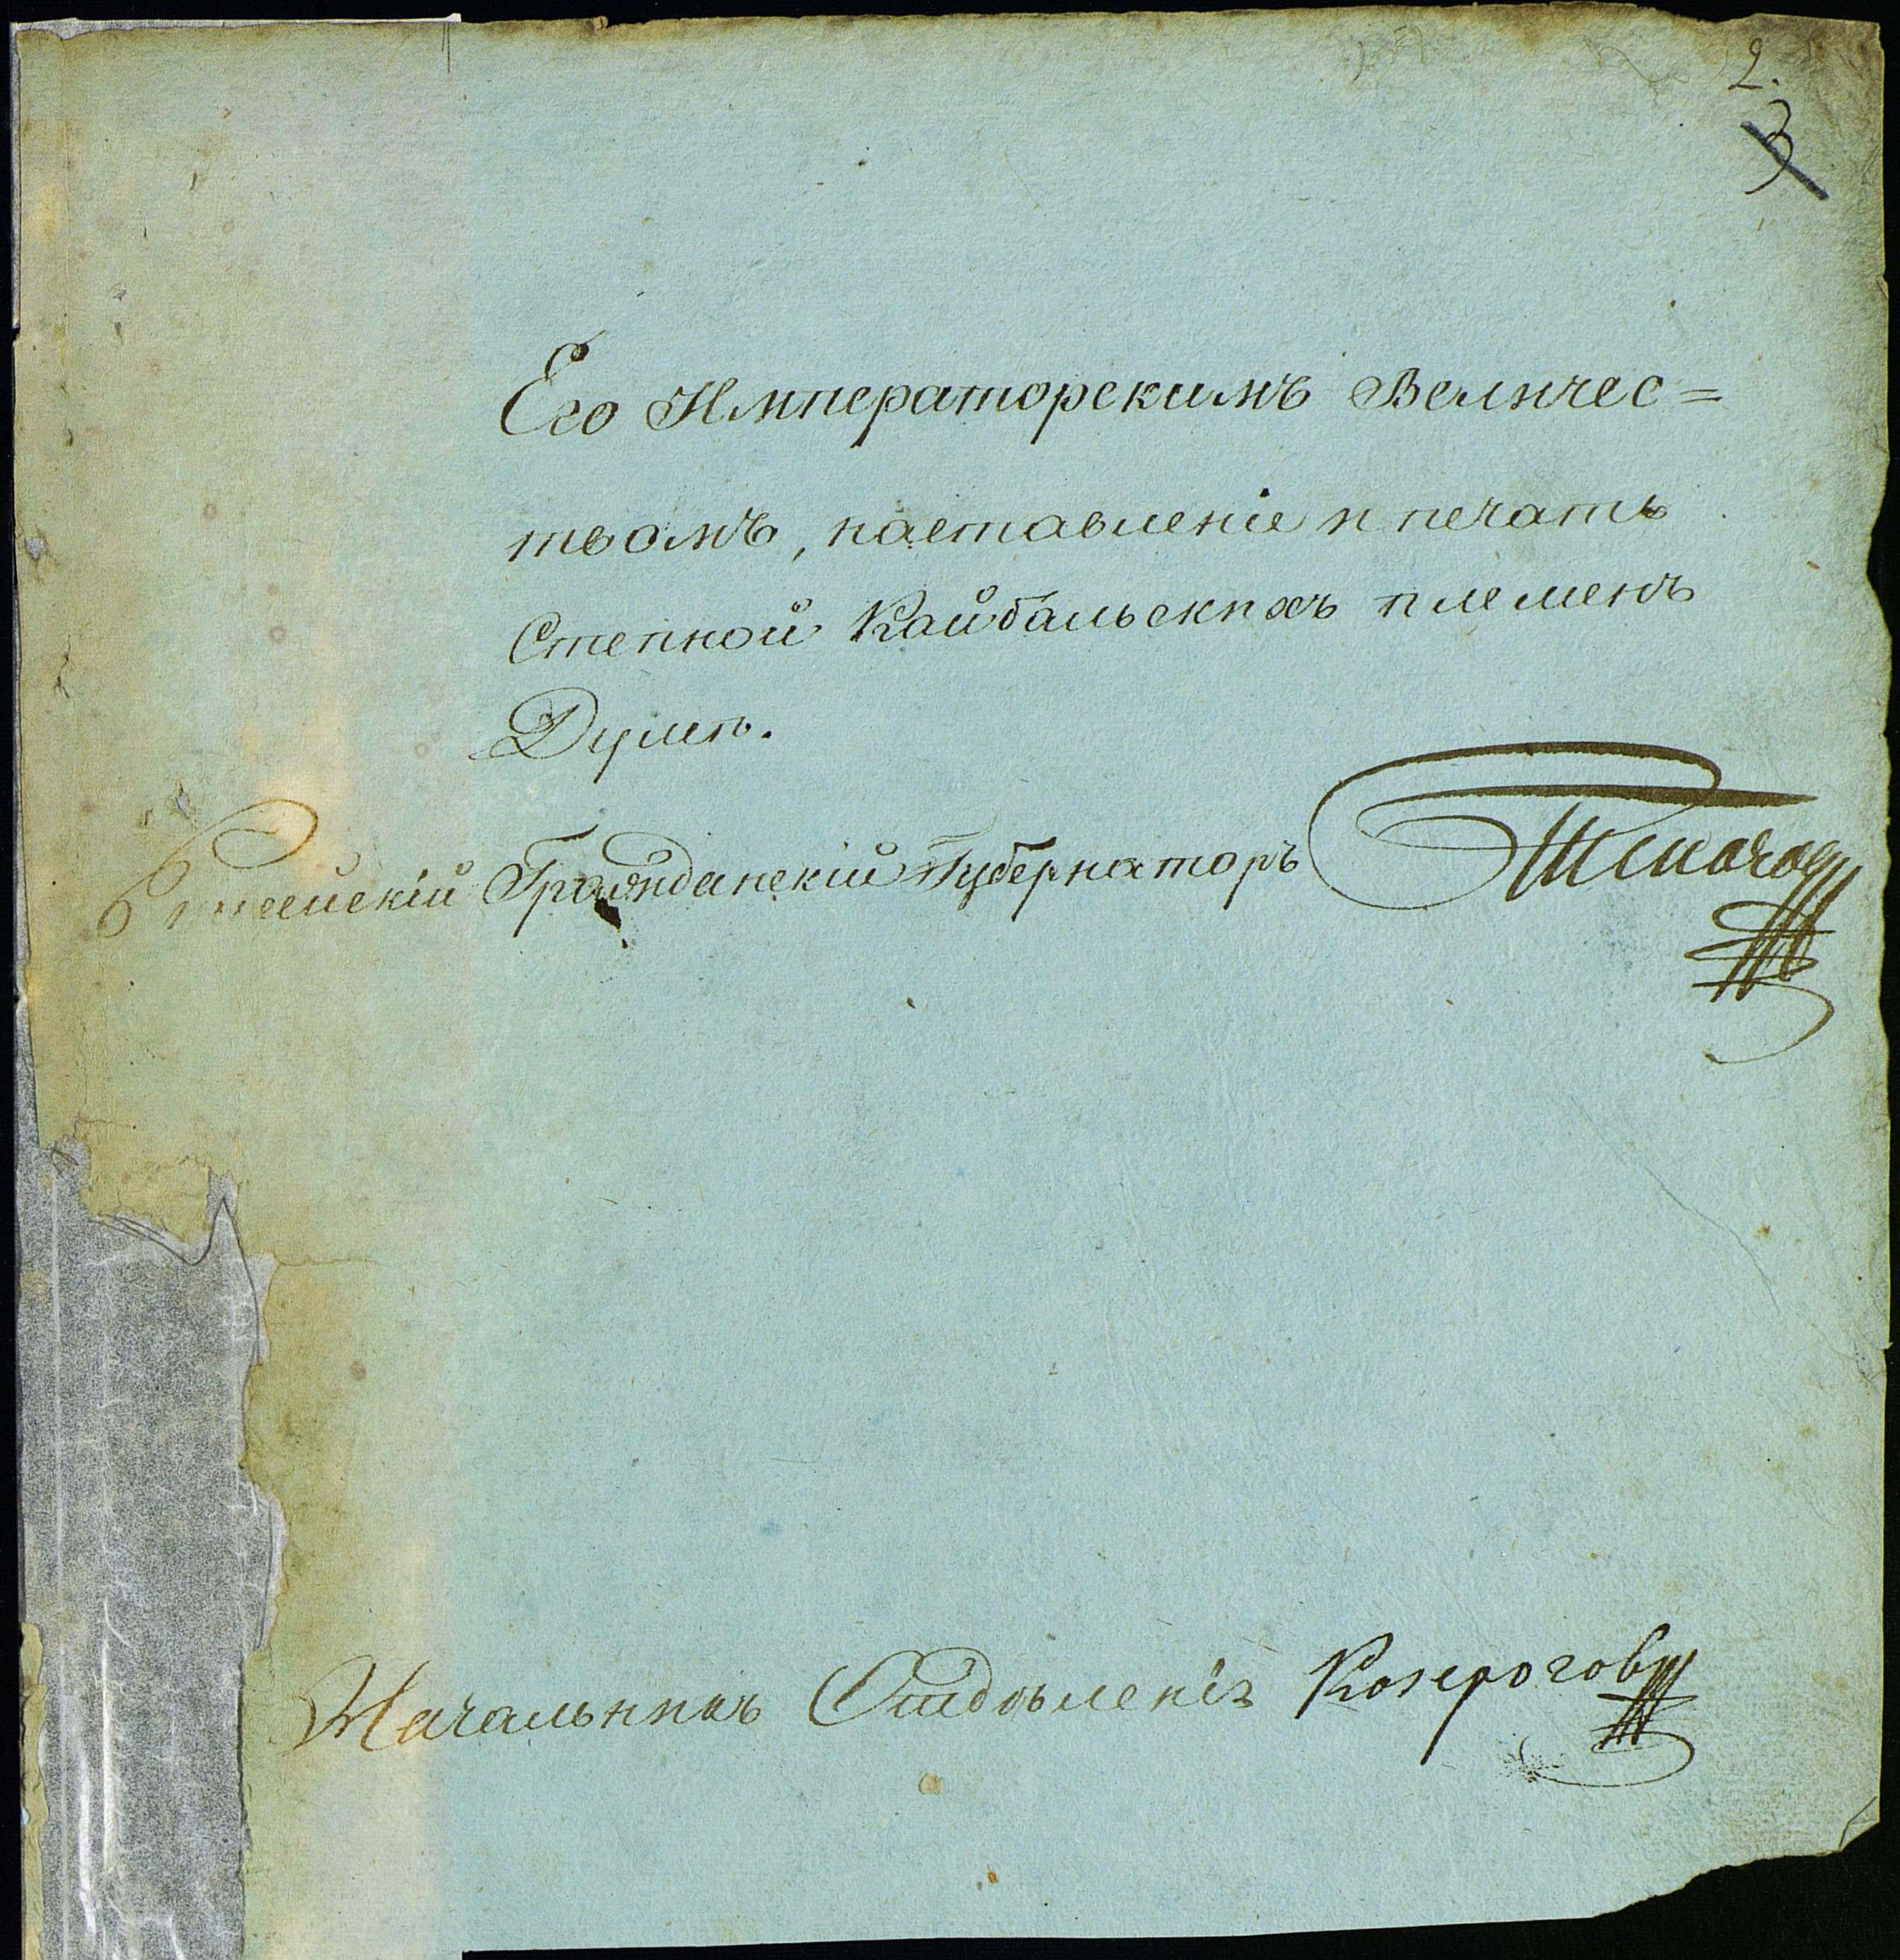 2.
3
Его Императорскимъ Величес=
твомъ, наставленіе и печать
Степной Койбальскихъ племенъ
Думѣ.
Гражданскій Губернаторъ
Начальникъ Отдѣленія Козероговъ